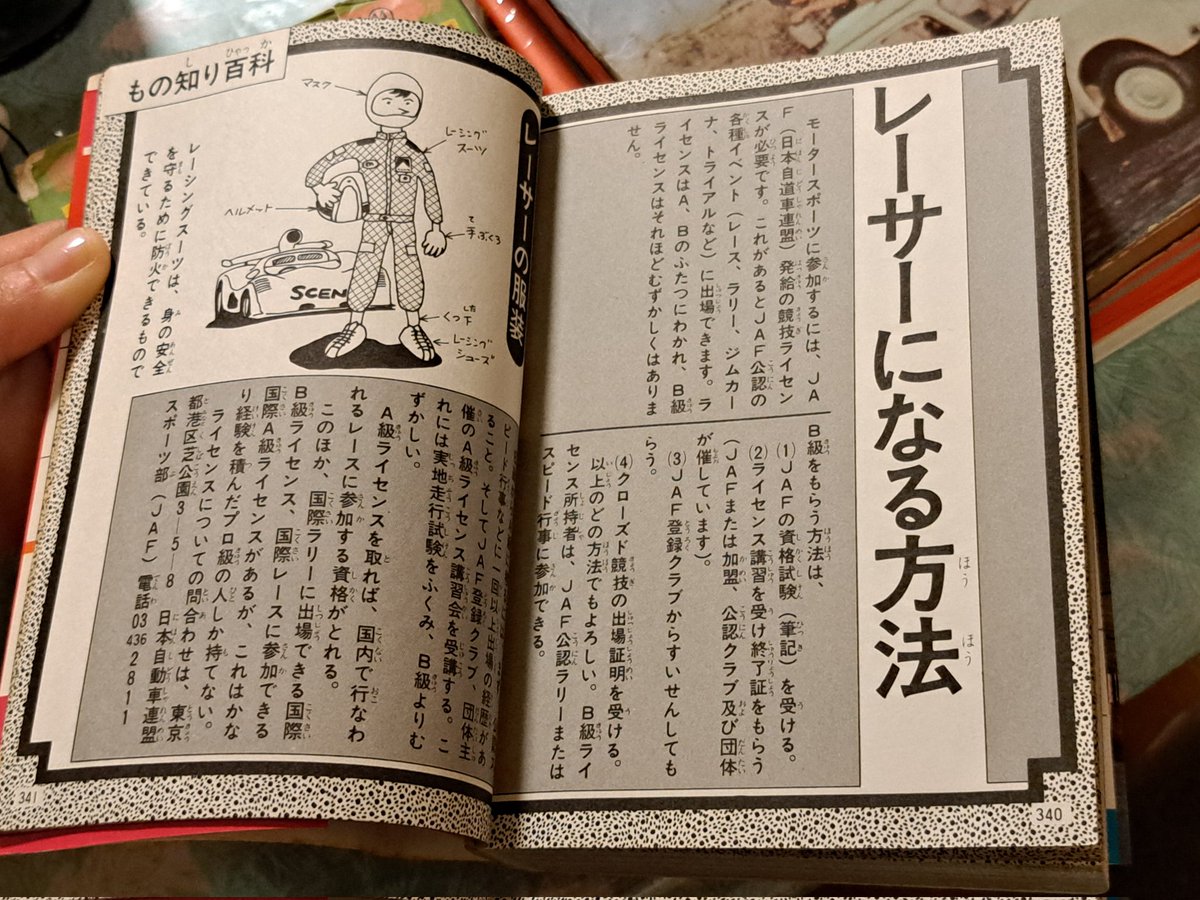 レーサーになる方法
モータースポーツに参加するには、JA
F（日本自道車連盟）発給の競技ライセン
スが必要です。これがあるとJAF公認の
各種イベント（レース、ラリー、ジムカー
ナ、トライアルなど）に出場できます。ラ
イセンスはA、Bのふたつにわかれ、B級
ライセンスはそれほどむずかしくはありま
せん。
B級をもらう方法は、
(1)JAFの資格試験（筆記）を受ける。
(2)ライセンス講習を受け終了証をもらう
（JAFまたは加盟、公認クラブ及び団体
が催しています）。
(3)JAF登録クラブからすいせんしても
らう。
(4)クローズド競技の出場証明を受ける。
以上のどの方法でもよろしい。B級ライ
センス所持者は、JAF公認ラリーまたは
スピード行事に参加できる。
340
もの知り百科
レーサーの服装
マスク
レーシング
スーツ
ヘルメット
手ぶくろ
くつ下
レーシング
シューズ
SCEN
レーシングスーツは、身の安全
を守るために防火できるもので
できている。
ピード行事などに一回以上出場の経歴があ
ること。そしてJAF登録クラブ、団体主
催のA級ライセンス講習会を受講する。こ
れには実地走行試験をふくみ、B級よりむ
ずかしい。
A級ライセンスを取れば、国内で行なわ
れるレースに参加する資格がとれる。
このほか、国際ラリーに出場できる国際
B級ライセンス、国際レースに参加できる
国際A級ライセンスがあるが、これはかな
り経験を積んだプロ級の人しか持てない。
ライセンスについての問合わせは、東京
都港区芝公園3—5—8 日本自動車連盟
スポーツ部（JAF）電話03 436 2811
341